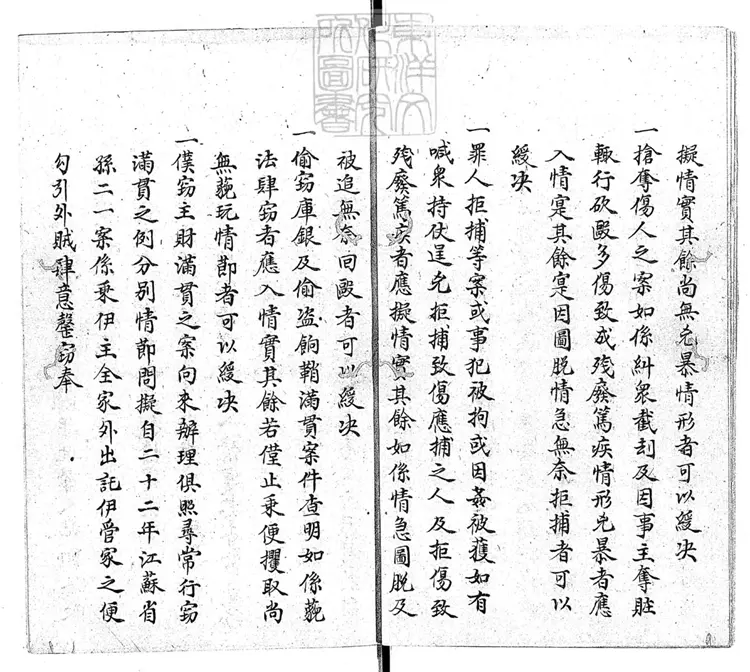 擬情實其餘尚無兇暴情形者可以緩决
一搶奪傷人之案如係糾衆截刦及因事主奪賍
輙行砍毆多傷致成殘癈篤疾情形兇暴者應
入情寔其餘寔因圖脫情急無奈拒捕者可以
緩决
一罪人拒捕等案或事犯被拘或因姦被獲如有
喊衆持仗逞兇拒捕致傷應捕之人及拒傷致
殘癈篤疾者應擬情實其餘如係情急圖脫及
被追無奈回毆者可以緩决
一偷窃庫銀及偷盗餉鞘滿貫案件查明如係藐
法肆窃者應入情實其餘若僅止乘便攫取尚
無藐玩情節者可以緩决
一僕窃主財滿貫之案向來辦理俱照尋常行窃
滿貫之例分别情節問擬自二十二年江蘇省
孫二一案係乘伊主全家外出託伊管家之便
勾引外賊肆意鏧窃奉
東洋文化研究所圖書